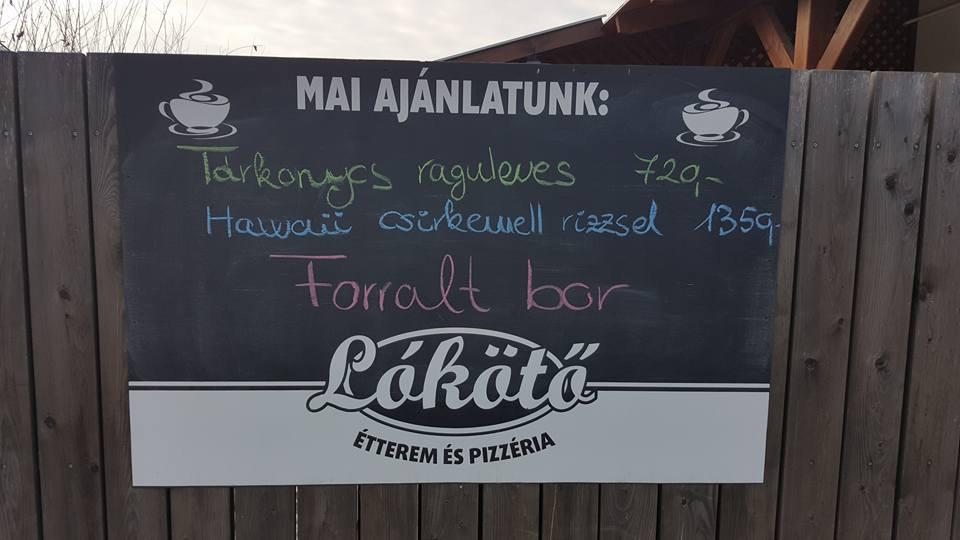 MAI AJÁNLATUNK:
Tárkonyos raguleves 720,-
Hawaii csirkemell rizzsel 1350,-
Forralt bor
Lókötő
ÉTTEREM ÉS PIZZÉRIA